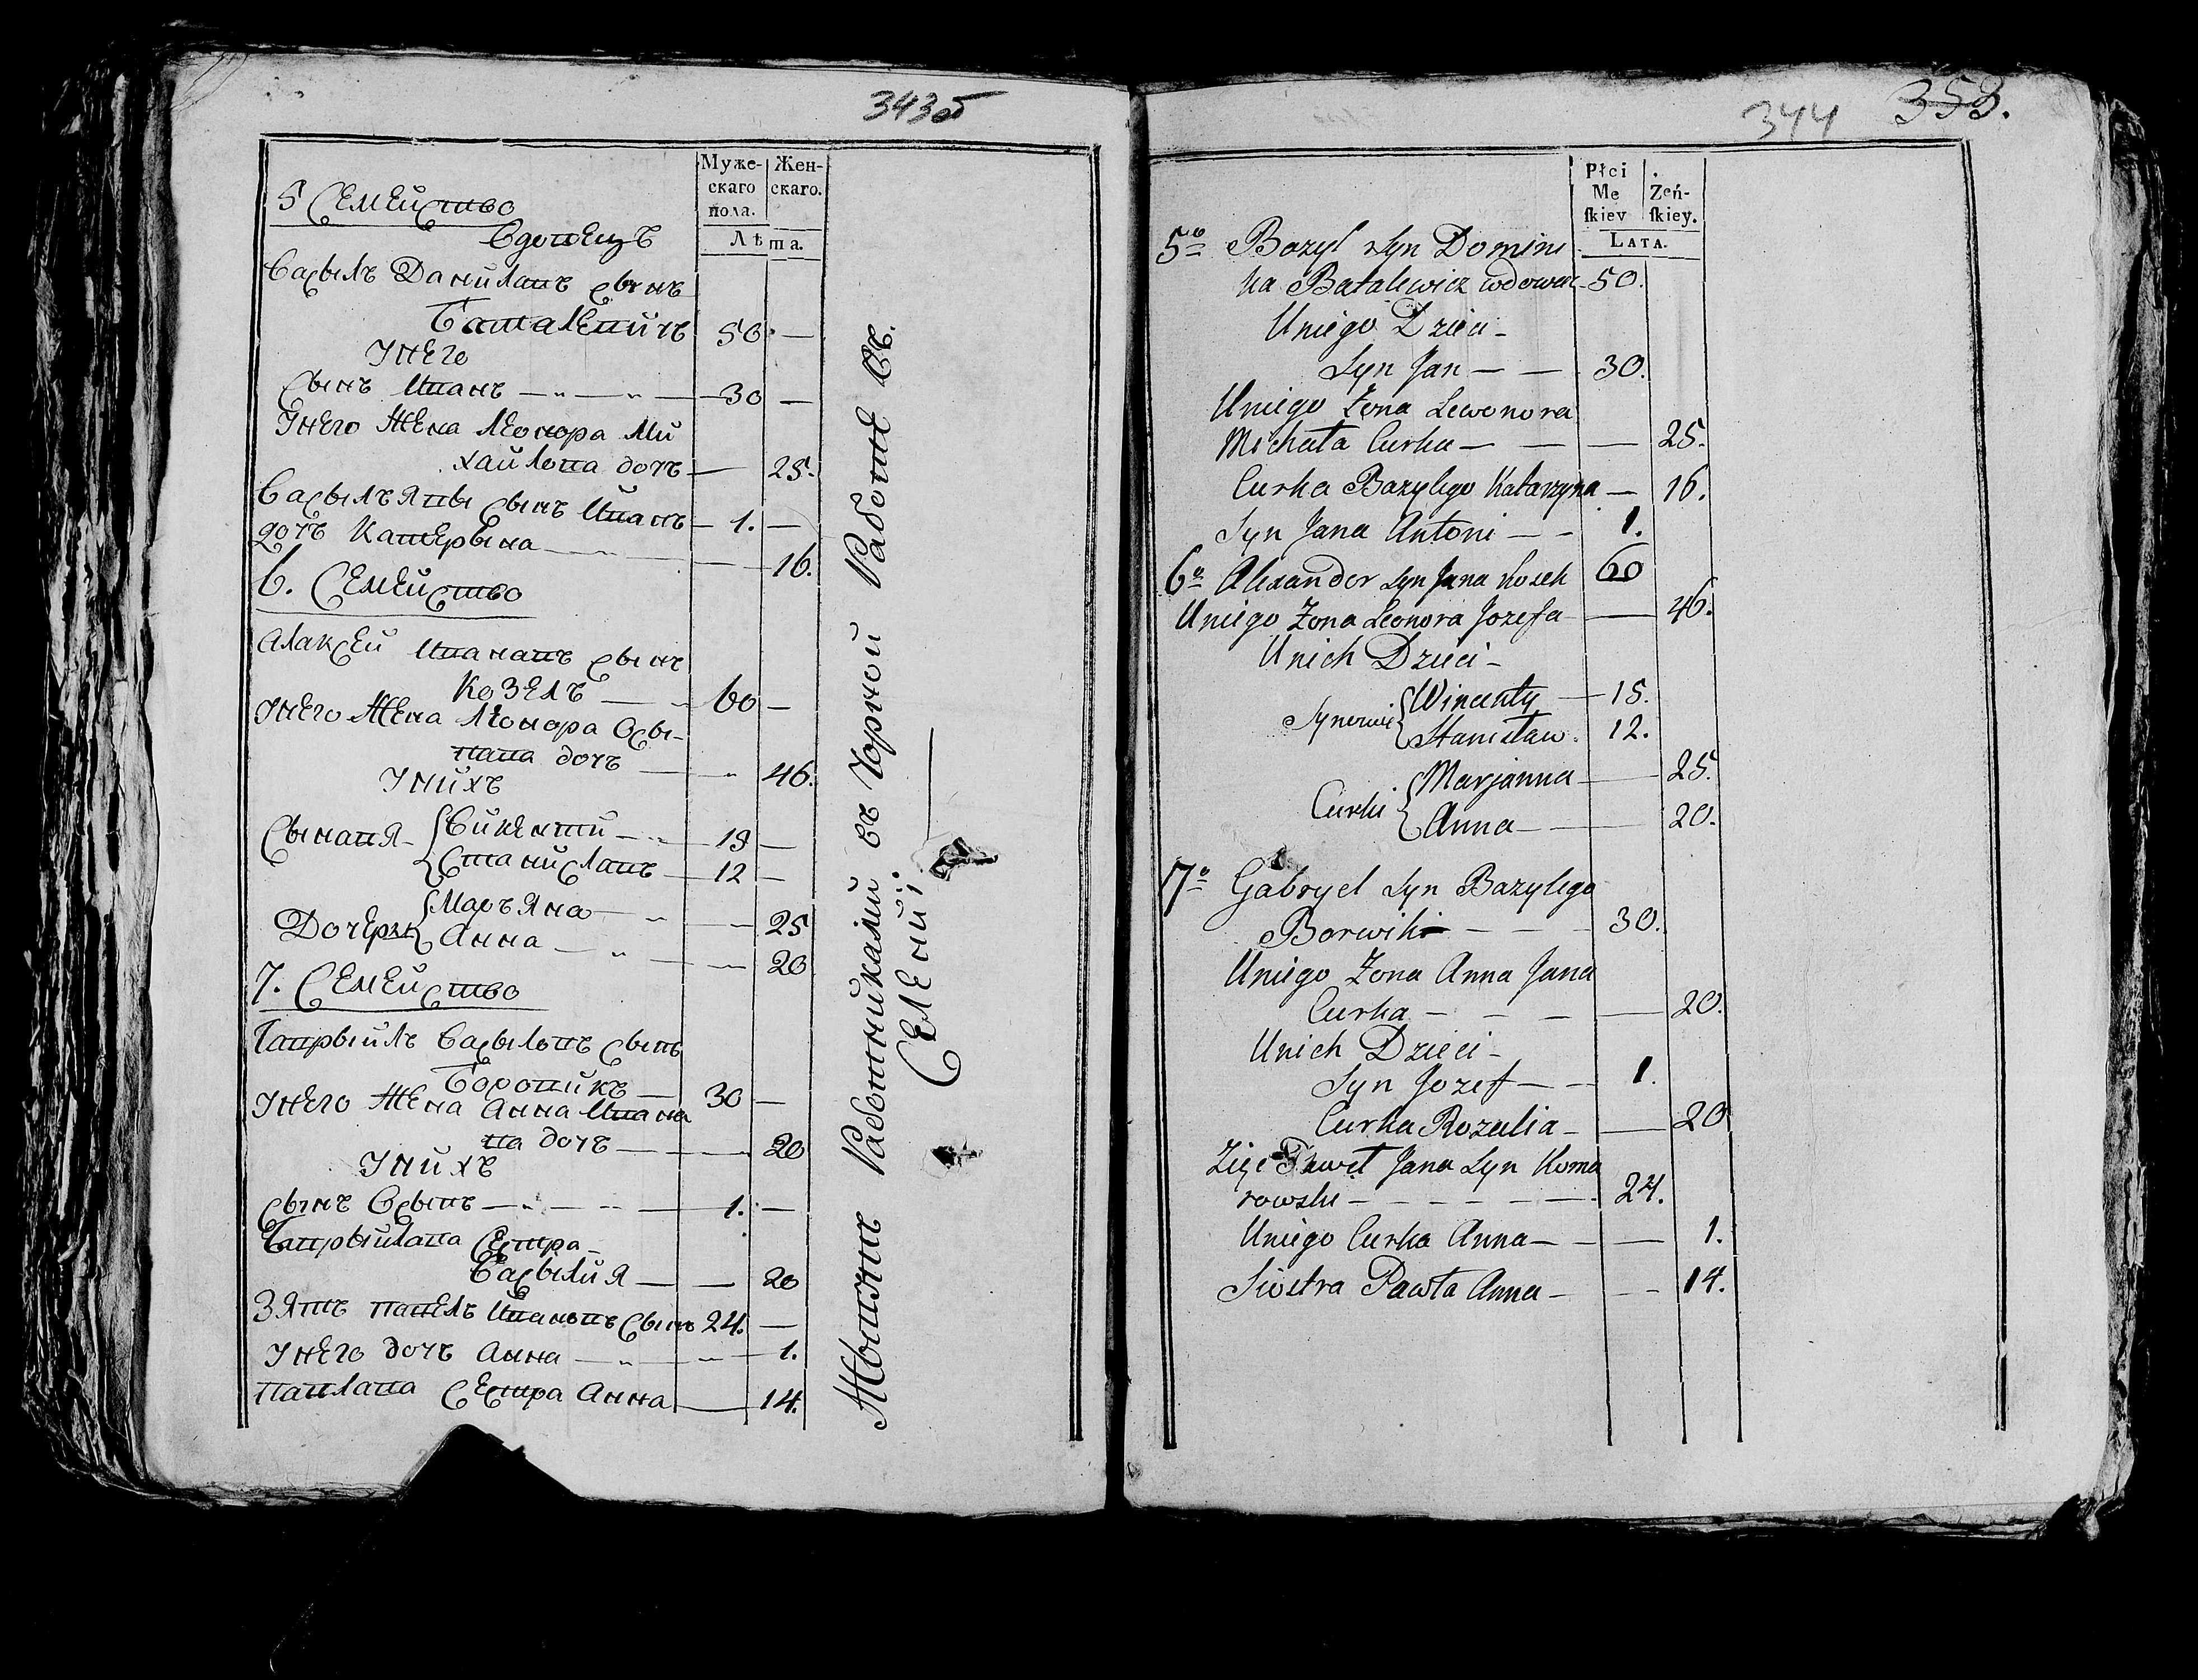 343об
Муже-
скаго
пола.
Жен-
скаго.
Лѣта.
5 Семейство
Вдовецъ
Васыль Данилавъ сынъ
Баталевичъ 50. —
Унего
Сынъ Иванъ — „ — „ — 30 —
Унего Жена Леонора Ми
хайлова дочъ — 25.
Васыльявы сынъ Иванъ — 1. —
дочъ Катерына — „ — 16.
6. Семейство
Алаксей Иванавъ сынъ
Козелъ — „ 60 —
Унего Жена Леонора Осы-
пава дочъ — „ 46.
Унихъ
Сынавя { Викенти — „ 15 —
Станиславъ — 12 —
Дочеры { Маръяна — „ — 25
Анна — „ — 20
7. Семейство
Гаврыилъ Васыловъ сынъ
Боровикъ — 30 —
Унего Жена Анна Ивана
ва дочъ — 20
Унихъ
сынъ Осыпъ — „ — „ — 1. —
Гаврыйлава Сестра
— — 20
Зять Павелъ Ивановъ Сынъ 24. —
Унего дочъ Анна — „ — „ — 1.
Павлава Сестра Анна — 14.
Живутъ Работниками въ Чорной Работе въ
Селении.
344 353.
Płci
Me
ſkiev
Żeń-
ſkiey.
LATA.
5o Bazyl Syn Domini
ka Batalewicz wdowiec 50.
Uniego Dzieci -
Syn Jan — — 30.
Uniego Żona Lewonora
Michała Curka — — — 25.
Curka Bazylego Katarzyna — 16.
Syn Jana Antoni — - 1.
6o Alexander Syn Jana Kozek 60
Uniego Żona Leonora Jozefa — 46.
Unich Dzieci -
Synowie { Wincenty — 15.
Stanisław. 12.
Curki { Marjanna — 25.
Anna — — 20.
7o Gabryel Syn Bazylego
Borwik — — — 30.
Uniego Żona Anna Jana
Curka — — — — 20.
Unich Dzieci -
Syn Jozef — - 1.
Curka Rozalia - — 20
Zięć Paweł Jana Syn Koma
rowski — — — — — 24.
Uniego Curka Anna — — — 1.
Siostra Pawła Anna — - - 14.